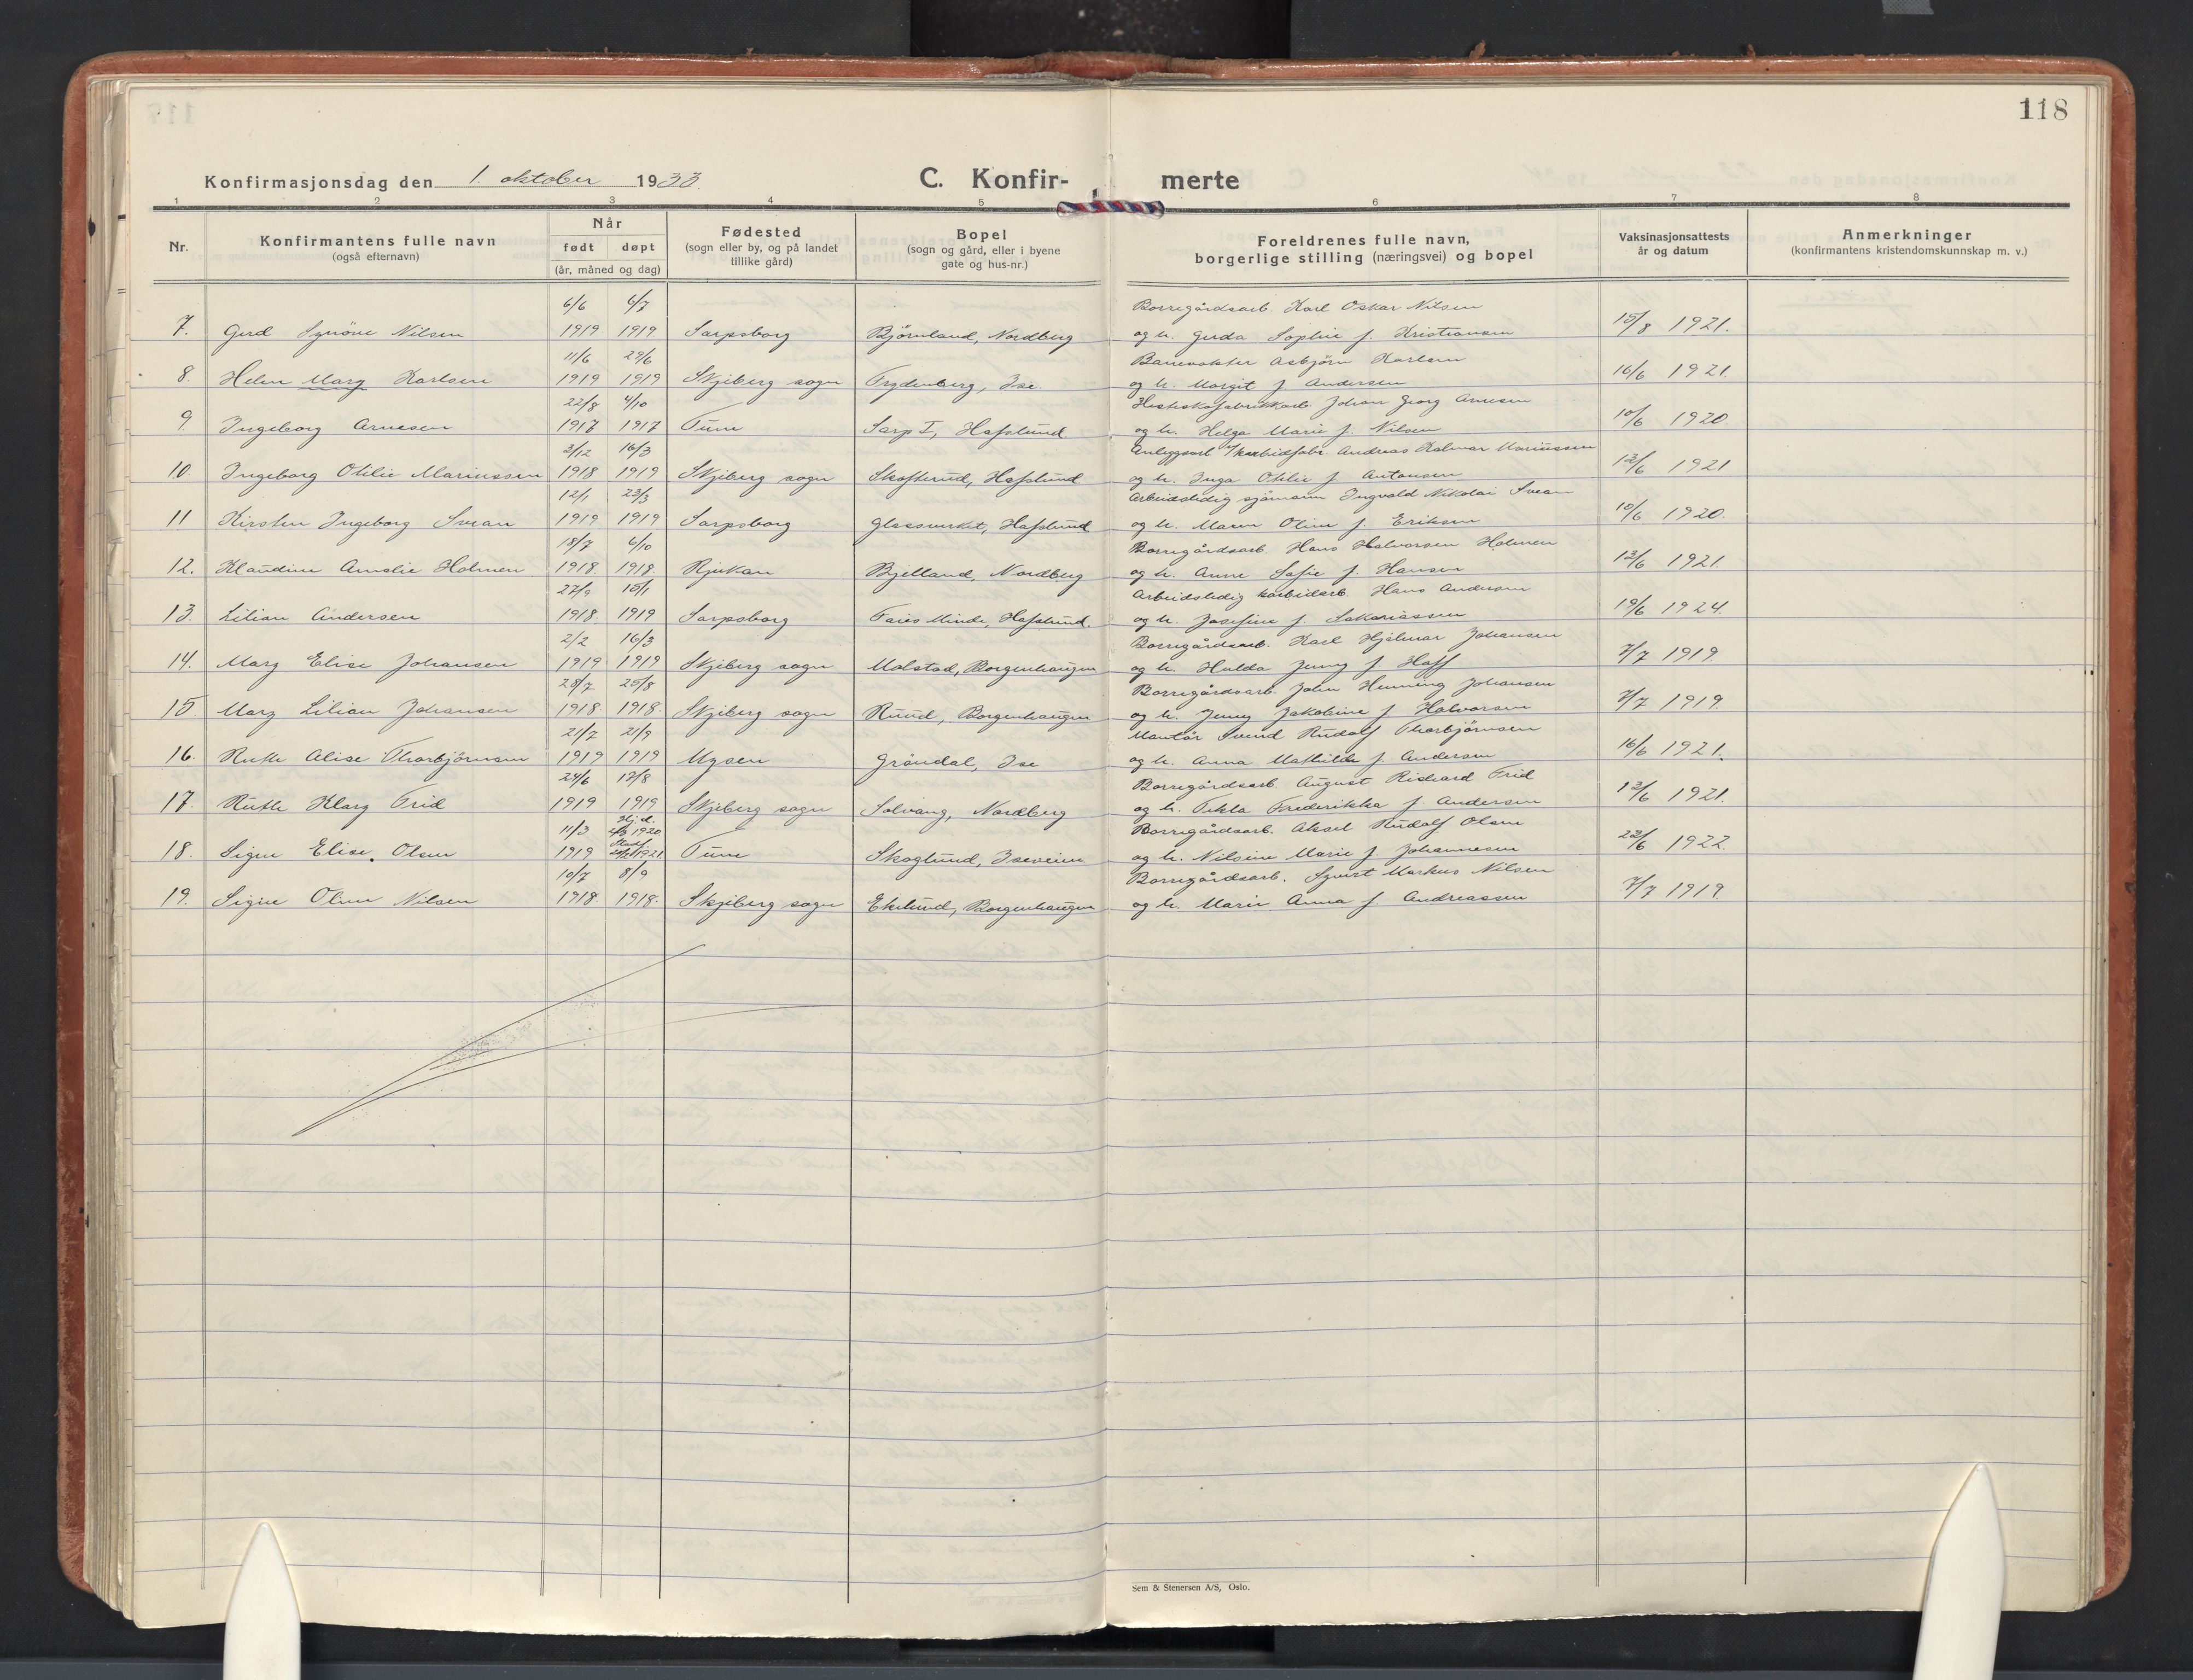 118
Konfirmasjonsdag den 1. oktober 1933
C. Konfir- merte
1 2 3 4 5 6 7 8
Nr.
Konfirmantens fulle navn
(også efternavn)
Når
født døpt
(år, måned og dag)
Fødested
(sogn eller by, og på landet
tillike gård)
Bopel
(sogn og gård, eller i byene
gate og hus-nr.)
Foreldrenes fulle navn,
borgerlige stilling (næringsvei) og bopel
Vaksinasjonsattests
år og datum
Anmerkninger
(konfirmantens kristendomskunnskap m. v.)
6/6 6/7 Borregårdsarb. Karl Oskar Nilsen
7. Gerd Synöve Nilsen 1919 1919 Sarpsborg Björnland, Nordberg og h. Gerda Sophie f. Kristiansen 15/8 1921.
11/6 29/6 Banevakter Asbjörn Karlsen
8. Helen Mary Karlsen 1919 1919 Skjeberg sogn Frydenberg, Ise. og h. Margit f. Andersen 16/6 1921.
22/8 4/10 Hesteskofabrikkarb. Johan Georg Arnesen
9. Ingeborg Arnesen 1917 1917 Tune Sarp I, Hafslund. og h. Helga Marie f. Nilsen 10/6 1920.
3/12 16/3 Anleggsarb. v/karbidfabr. Andreas Kalmar Mariussen
10. Ingeborg Otilie Mariussen 1918 1919 Skjeberg sogn Skofterud, Hafslund og h. Inga Otilie f. Antonsen 13/6 1921
12/1 23/3 Arbeidsledig sjömann Ingvald Nikolai Svean
11 Kirsten Ingeborg Svean 1919 1919 Sarpsborg Glassverket, Hafslund og h. Maren Oline f. Eriksen 10/6 1920.
18/7 6/10 Borregårdsarb. Hans Halvorsen Holmen
12. Klaudine Amalie Holmen 1918. 1918. Rjukan Bjelland, Nordberg og h. Anne Sofie f. Hansen 13/6 1921.
27/9 10/1 Arbeidsledig karbidarb. Hans Andersen
13. Lilian Andersen 1918. 1919 Sarpsborg Faies Minde, Hafslund. og h. Josefine f. Sakariassen 19/6 1924.
2/2 16/3 Borregårdsarb. Karl Hjalmar Johansen
14. Mary Elise Johansen 1919 1919 Skjeberg sogn Molstad, Borgenhaugen og h. Hulda Jenny f. Hoff 7/7 1919.
28/7 25/8 Borregårdsarb. John Henning Johansen
15. Mary Lilian Johansen 1918. 1918. Skjeberg sogn Ruud, Borgenhaugen og h. Jenny Jakobine f. Halvorsen 7/7 1919.
21/7 21/9 Montör Svend Rudolf Thorbjörnsen
16. Ruth Alise Thorbjörnsen 1919 1919 Mysen Gröndal, Ise og h. Anna Mathilde f. Andersen 16/6 1921.
24/6 17/8 Borregårdsarb. August Richard Frid
17. Ruth Klary Frid 1919 1919 Skjeberg sogn Solvang, Nordberg og h. Tekla Frederikka f. Andersen 13/6 1921.
11/3 Hj. d. 4/3 1920 Borregårdsarb. Aksel Rudolf Olsen
18. Signe Elise Olsen 1919 1921 Tune Skoglund, Iseveien og h. Nilsine Marie f. Johannesen 22/6 1922.
10/7 8/9 Borregårdsarb. Syvert Markus Nilsen
19. Signe Oline Nilsen 1918 1918. Skjeberg sogn Ekelund, Borgenhaugen og h. Marie Anna f. Andreassen 7/7 1919.
Sem & Stenersen A/S, Oslo.